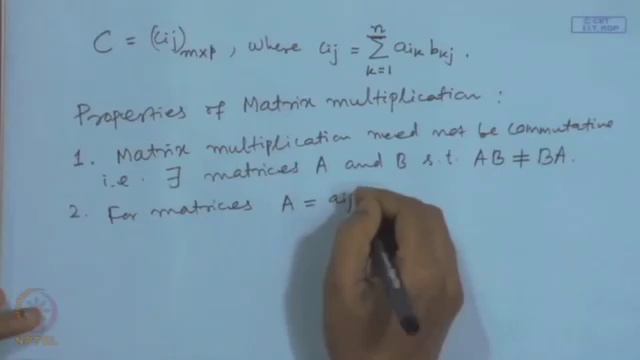 C = (cij)mxp, where cij = n∑k=1 aik bkj.
C-CET
I.I.T. KGP
Properties of Matrix multiplication :
1. Matrix multiplication need not be commutative
i.e. ∃ matrices A and B s.t. AB ≠ BA.
2. For matrices A = aij
NPTEL